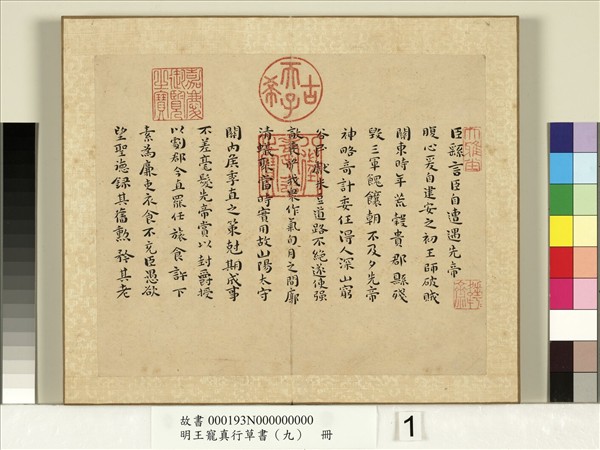 臣繇言臣自遭遇先帝
腹心爰自建安之初王師破賊
關東時年荒穀貴郡縣殘
毀三軍餽饟朝不及夕先帝
神略奇計委任得人深山窮
谷民獻米豆道路不絕遂使強
敵喪膽我眾作氣旬月之間廓
清蟻聚當時實用故山陽太守
關內侯季直之策尅期成事
不差毫髮先帝賞以封爵授
以劇郡今直罷任旅食許下
素為廉吏衣食不充臣愚欲
望聖德錄其舊勲矜其老
古希天子
嘉慶御覽之寶
故書 000193N000000000
明王寵真行草書（九） 冊
1